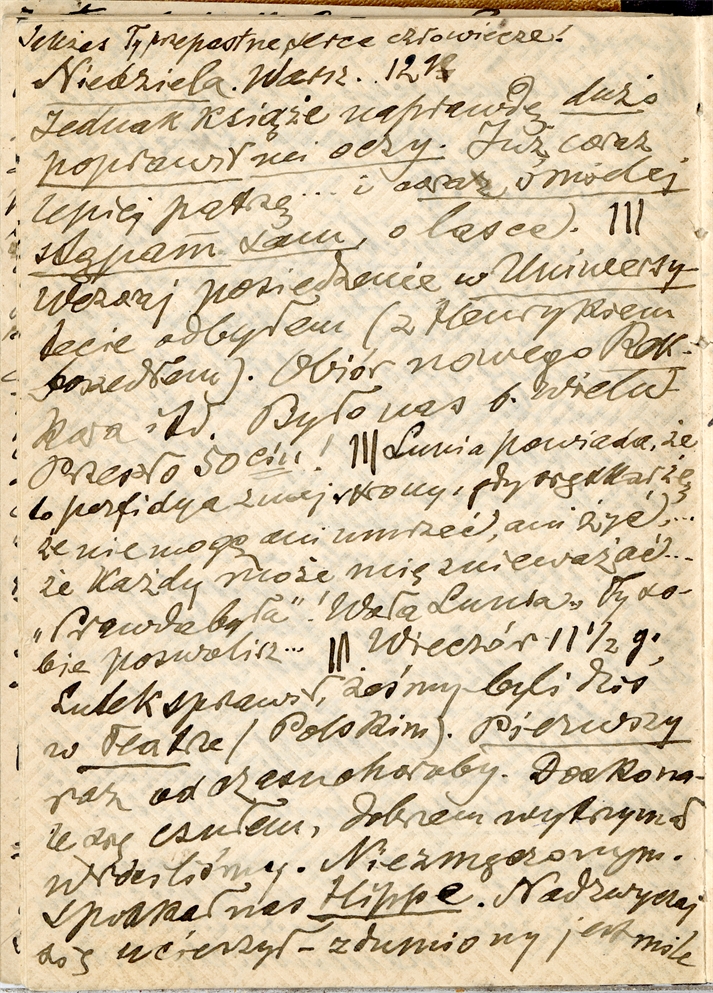 Jakżeś Ty przepastne serce człowiecze!
Niedziela. Warsz. 12½
Jednak książę naprawdę dużo
poprawił mi oczy. Już coraz
lepiej patrzę... i coraz śmielej
stąpam sam, o lasce). |||
Wczoraj posiedzenie w Uniwersy-
tecie odbyłem (z Henrykiem
poszedłem). Obiór nowego Rek-
tora itd. Było nas b. wielu
Przeszło 50ciu! ||| Lunia powiada, że
to perfidya z mej strony, gdy się skarżę,
że nie mogę ani umrzeć, ani żyć)...
że każdy może mię znieważać...
"Prawda była"! Woła Lunia. Ty so-
bie pozwolisz... ||| Wieczór 11½ g.
Lutek sprawił, żeśmy byli dziś
w Teatrze (Polskim). Pierwszy
raz od czasu choroby. Doskona-
le się czułem, dobrzem wytrzymał
wróciliśmy. Niezmęczonym.
Spotkał nas Hippe. Nadzwyczaj
się ucieszył – zdumiony jest mile